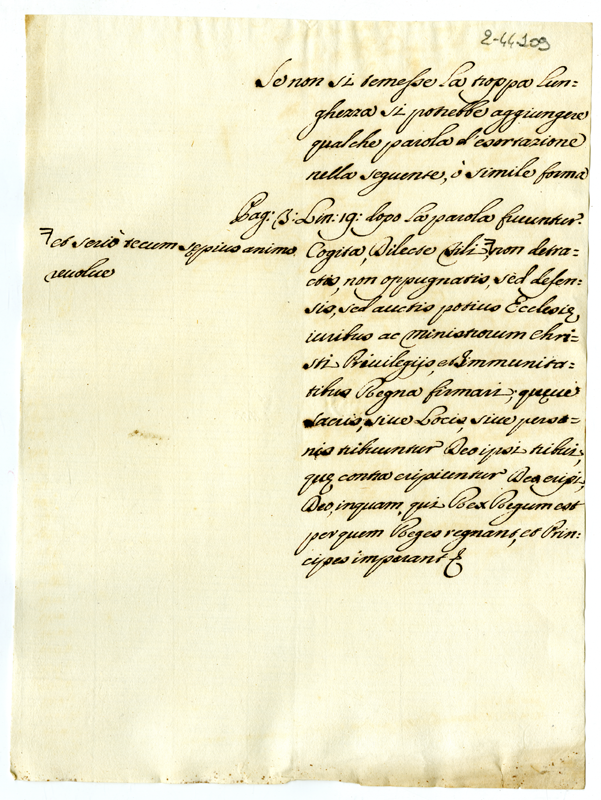 2-44-109
Se non si temesse la troppa lun=
ghezza si potrebbe aggiungere
qualche parola d'esortazione
nella seguente, ò simile forma
Pag: 3: Lin: 19: dopo la parola fruuntur.
et seriò tecum sępius animo
reuolue
Cogita, Dilecte Fili, non detra=
ctis, non oppugnatis, sed defen=
sis, sed auctis potius Ecclesię
iuribus ac ministrorum Chri=
sti Priuilegijs, et Immunita=
tibus Regna firmari; quęue
sacris, siue Locis, siue perso=
nis tribuuntur Deo ipsi tribui,
quę contra eripiuntur Deo eripi,
Deo, inquam, qui Rex Regum est
per quem Reges regnant, et Prin=
cipes imperant &